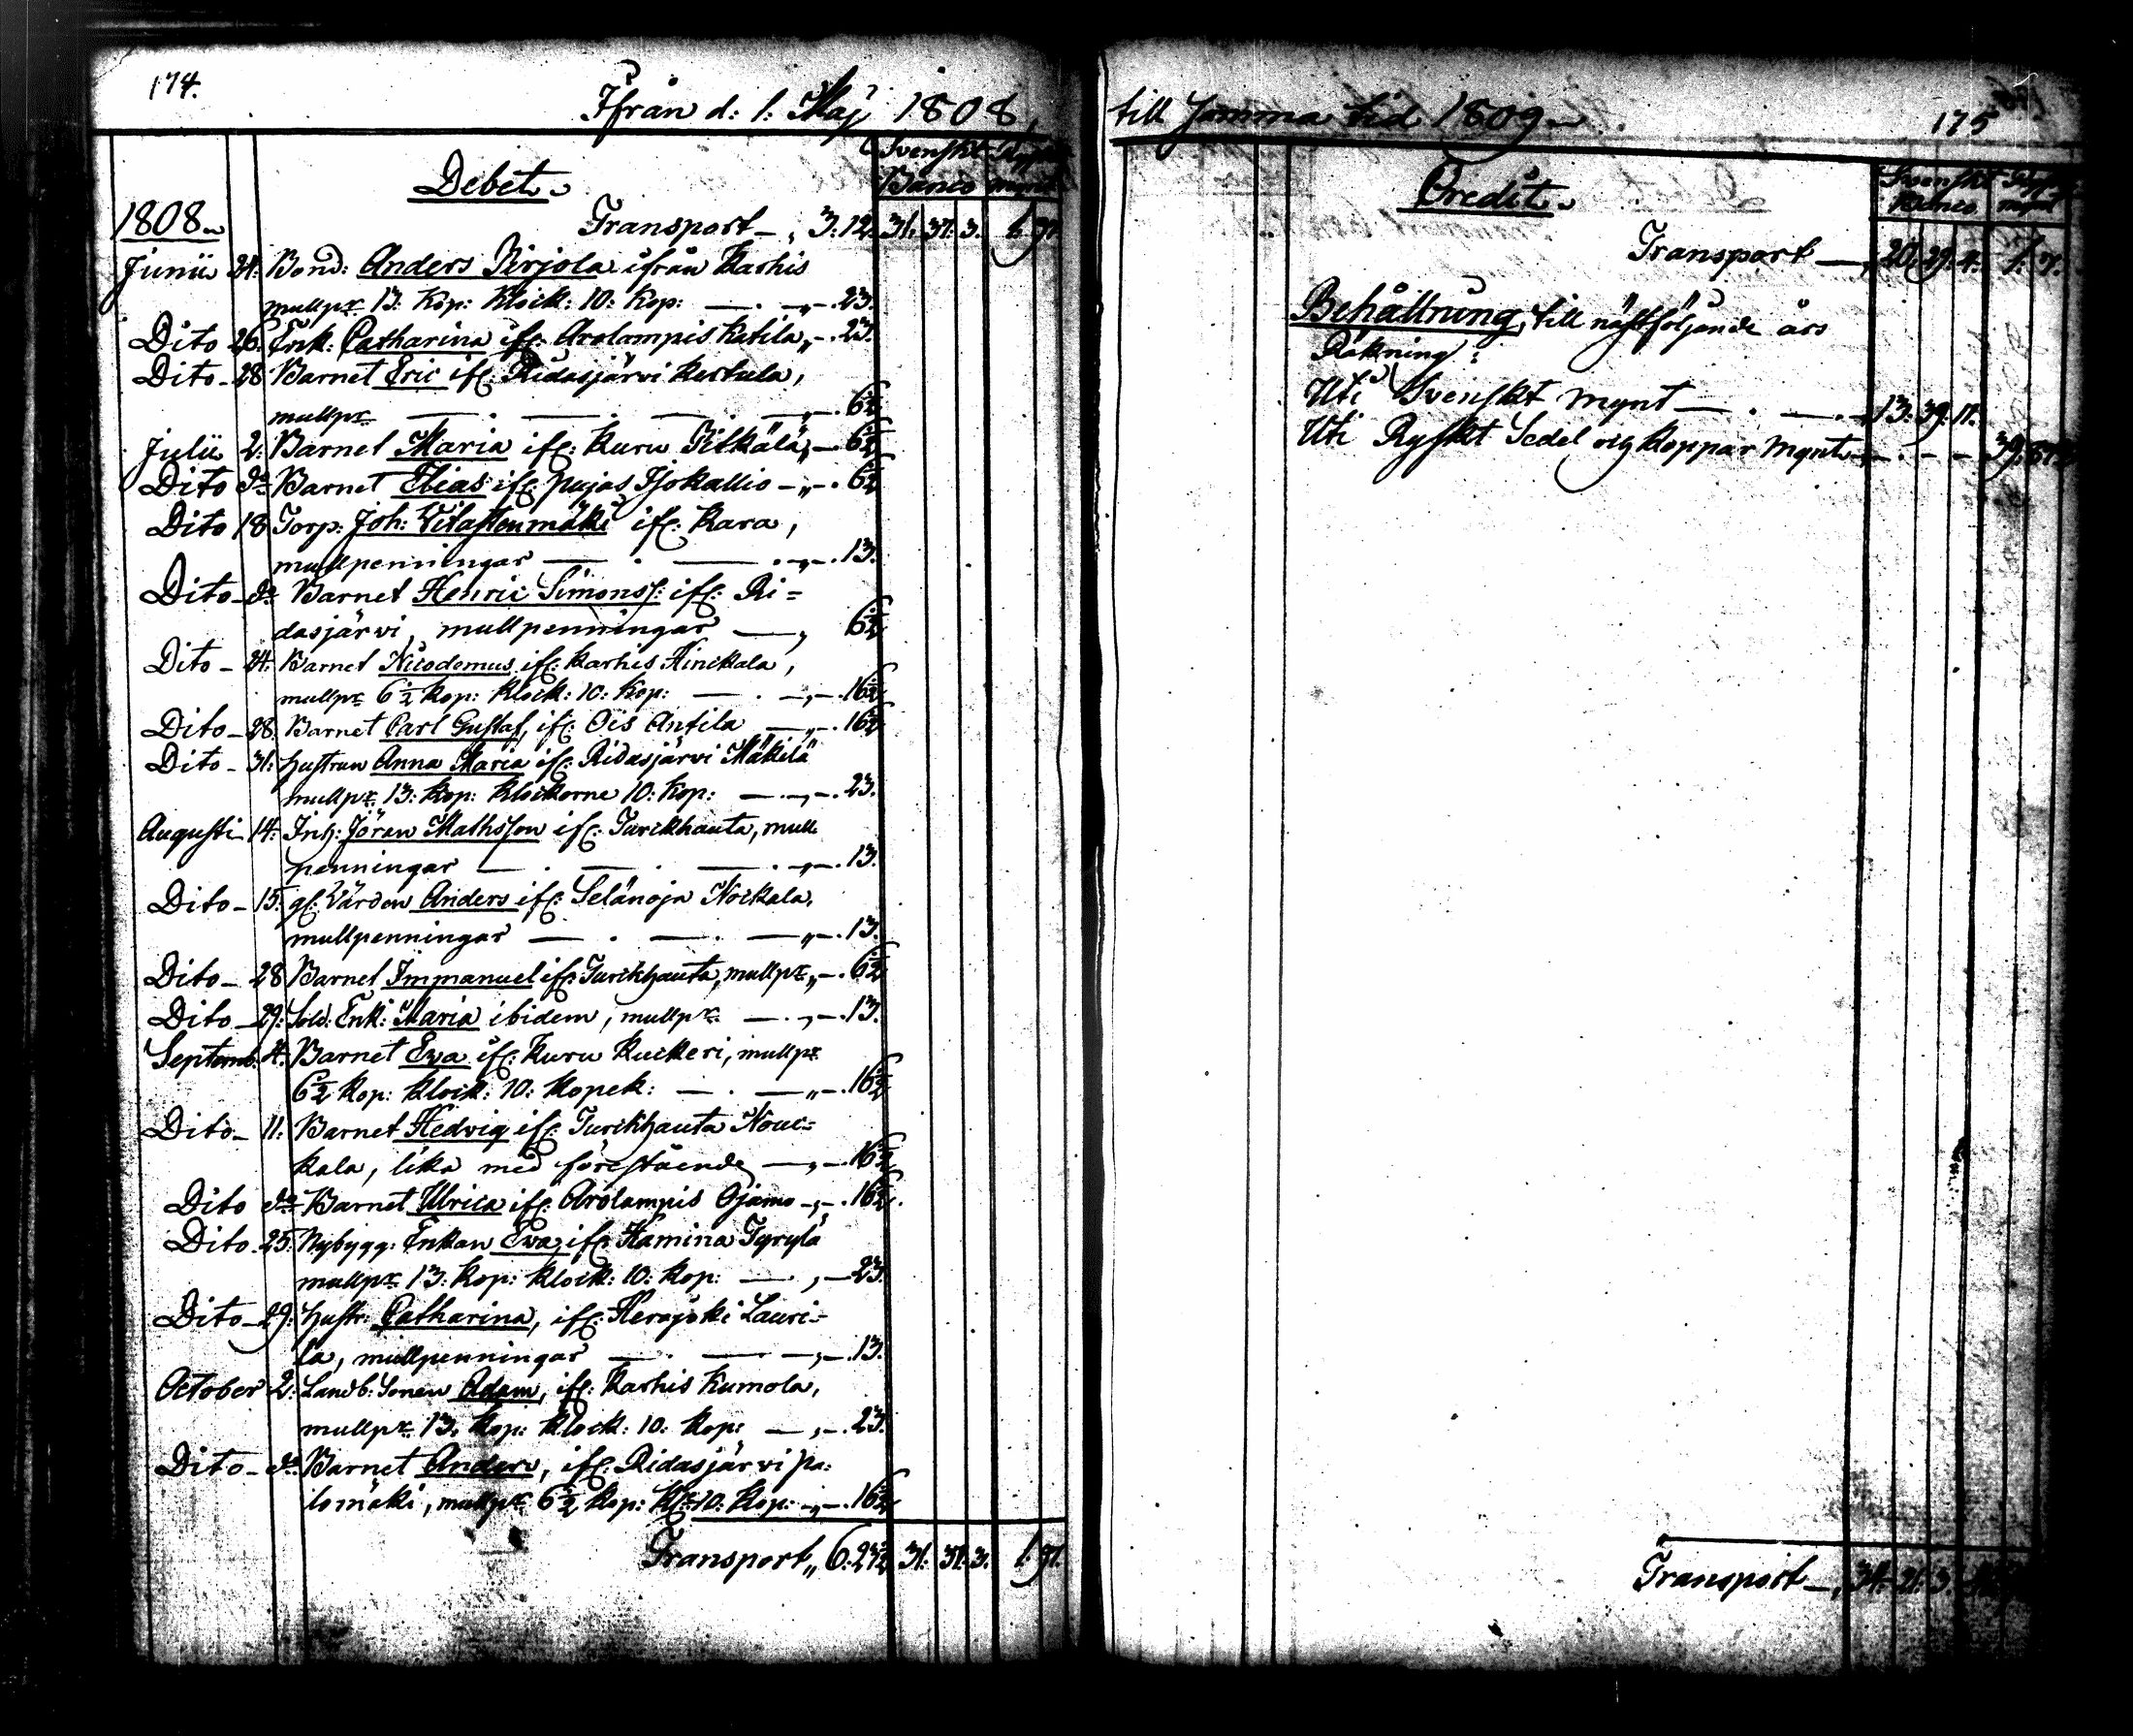 174.
Ifrån d: 1. Maj 1808,
Svenskt
Banco mynt
Debet.
1808.
Transport —, 3. 12. 31. 37. 3. 1. 91.
Junii 24: Bond: Anders Pirjola ifrån Karhis
mullpr 13: Kop: Klock: 10: Kop: — . —„—. 23.
Dito 26. Enk: Catharina ifr: Arolampis Katila„—. 23.
Dito — 28 Barnet Eric ifr: Ridasjärvi Kertula,
mullpr — . — . — . —„—. 6½
Julii 2: Barnet Maria ifr: Kuru Pilkälä„—. 6½
Dito do Barnet Elias ifr: pujas Isokallio —„—. 6½
Dito 18 Torp: Joh: ifr: Kara,
mullpenningar — . — . „—. 13.
Dito — do Barnet Henric Simonss: ifr: Ri=
dasjärvi, mullpenningar —, 6½
Dito — 24: Barnet Nicodemus ifr: Karhis Hinckala,
mullpr 6½ Kop: Klock: 10: Kop: — . —„—. 16½
Dito — 28. Barnet Carl Gustaf, ifr: Ois Antila —„—. 16½
Dito — 31: hustrun Anna Maria ifr: Ridasjärvi Mäkilä
mullpr 13: Kop: Klockorne 10: Kop: — . —„—. 23.
Augusti — 14: Inh: Jöran Mathsson ifr: Turckhauta, mull
penningar — . — . — . „—. 13.
Dito — 15: gl: Värden Anders ifr: Selänoja Nockala,
mullpenningar — . — . —„—. 13.
Dito — 28 Barnet Immanuel ifr: Turckhauta, mullpr„—. 6½
Dito — 29: Sold: Enk: Maria ibidem, mullpr — . „—. 13.
Septemb. 4: Barnet Eva ifr: Kuru Kuckeri, mullpr
6½ Kop: Klock: 10: Kopek: — . —„—. 16½
Dito — 11: Barnet Hedvig ifr: Turckhauta Nouc=
kala, lika med förestående —„—. 16½
Dito do Barnet Ulrica ifr: Arolampis Ojamo —„—. 16½.
Dito — 25: Nybygg: Enkan Eva, ifr: Hamina Tyrylä
mullpr 13: Kop: Klock: 10: Kop: — . , — 23.
Dito — 29: hustr: Catharina, ifr: Herajoki Lauri=
la, mullpenningar — . — —„—. 13.
October 2: Landb: Sonen Adam, ifr: Karhis Kumola,
mullpr 13: Kop: Klock: 10: Kop: —„—. 23.
Dito — do Barnet Anders, ifr: Ridasjärvi pa=
lomäki, mullpr 6½ Kop: Kl: 10: Kop: —„—. 16½
Transport„ 6. 27½ 31. 37. 3. 1. 91.
till samma tid 1809.
175
Svenskt
Banco mynt
Credit.
Transport —, 20. 29. 4. 1. 7.
Behållning, till nästföljande års
Räkning:
Uti Svenskt mynt — . — . — 13. 39. 11.
Uti Ryskt Sedel och Koppar mynt — . — — 39.
Transport —, 34. 21. 3.